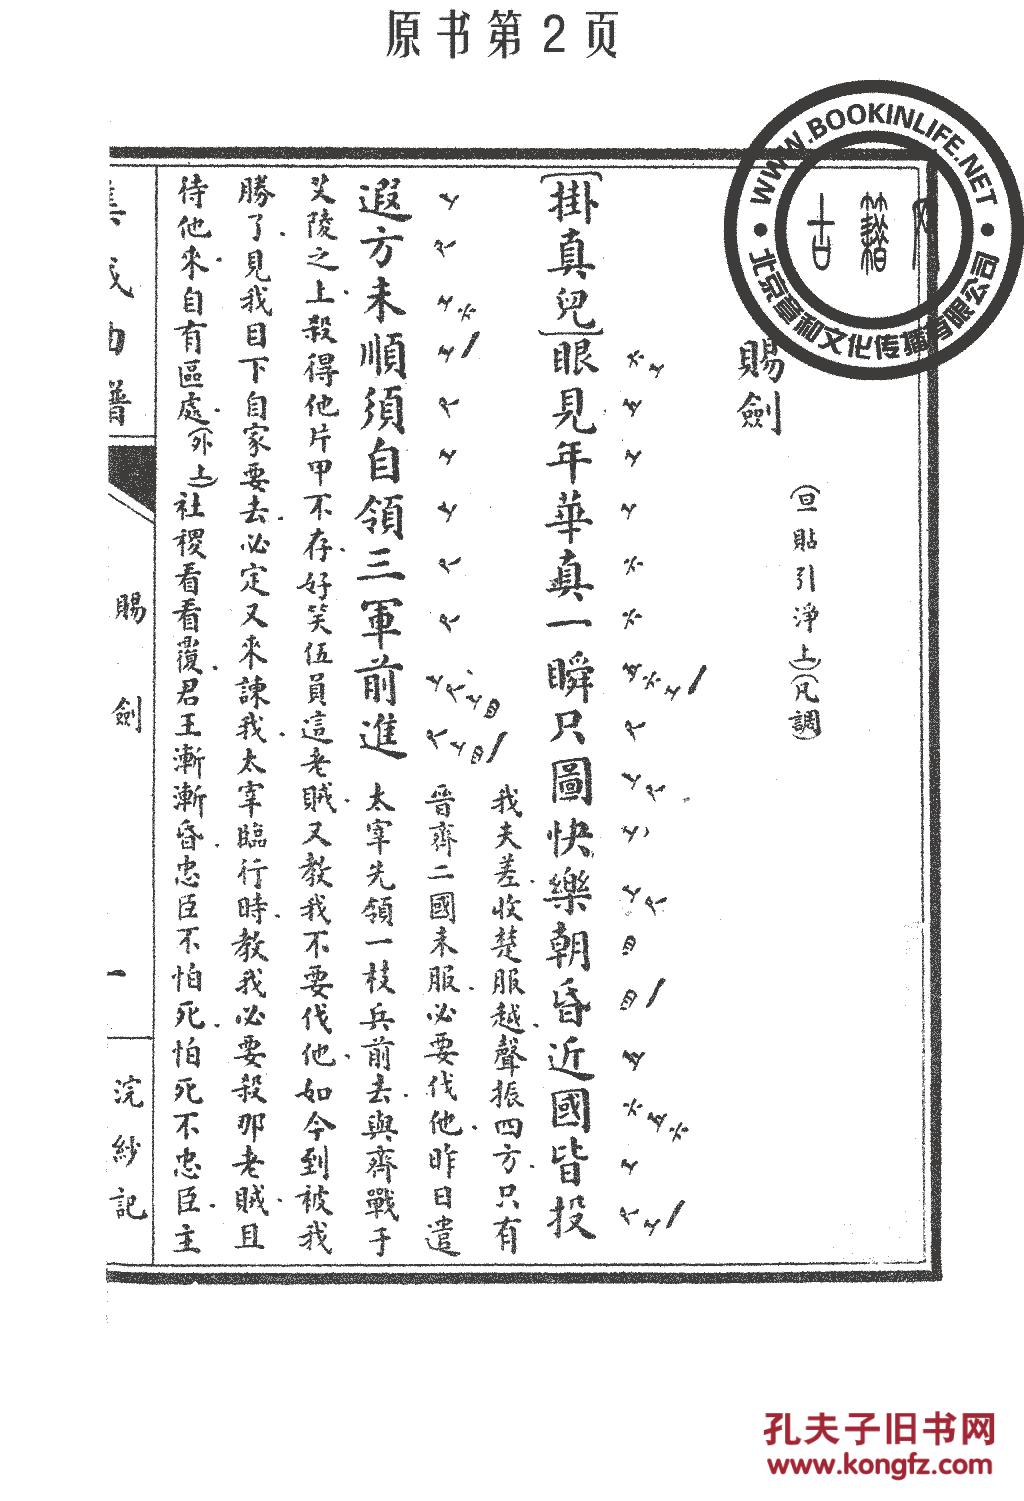 原书第2页
WWW.BOOKINLIFE.NET
北京章和文化传播有限公司
賜劍
(旦貼引淨上)(凡調)
[掛真兒]眼見年華真一瞬只圖快樂朝昏近國皆投
我夫差收楚服越聲振四方只有
晉齊二國未服必要伐他昨日遣
遐方未順須自領三軍前進
太宰先領一枝兵前去與齊戰于
艾陵之上殺得他片甲不存好笑伍員這老賊又教我不要伐他如今到被我
勝了見我目下自家要去必定又來諫我太宰臨行時教我必要殺那老賊且
待他來自有區處(外上)社稷看看覆君王漸漸昏忠臣不怕死怕死不忠臣主
集成曲譜
賜劍
一
浣紗記
孔夫子旧书网
www.kongfz.com